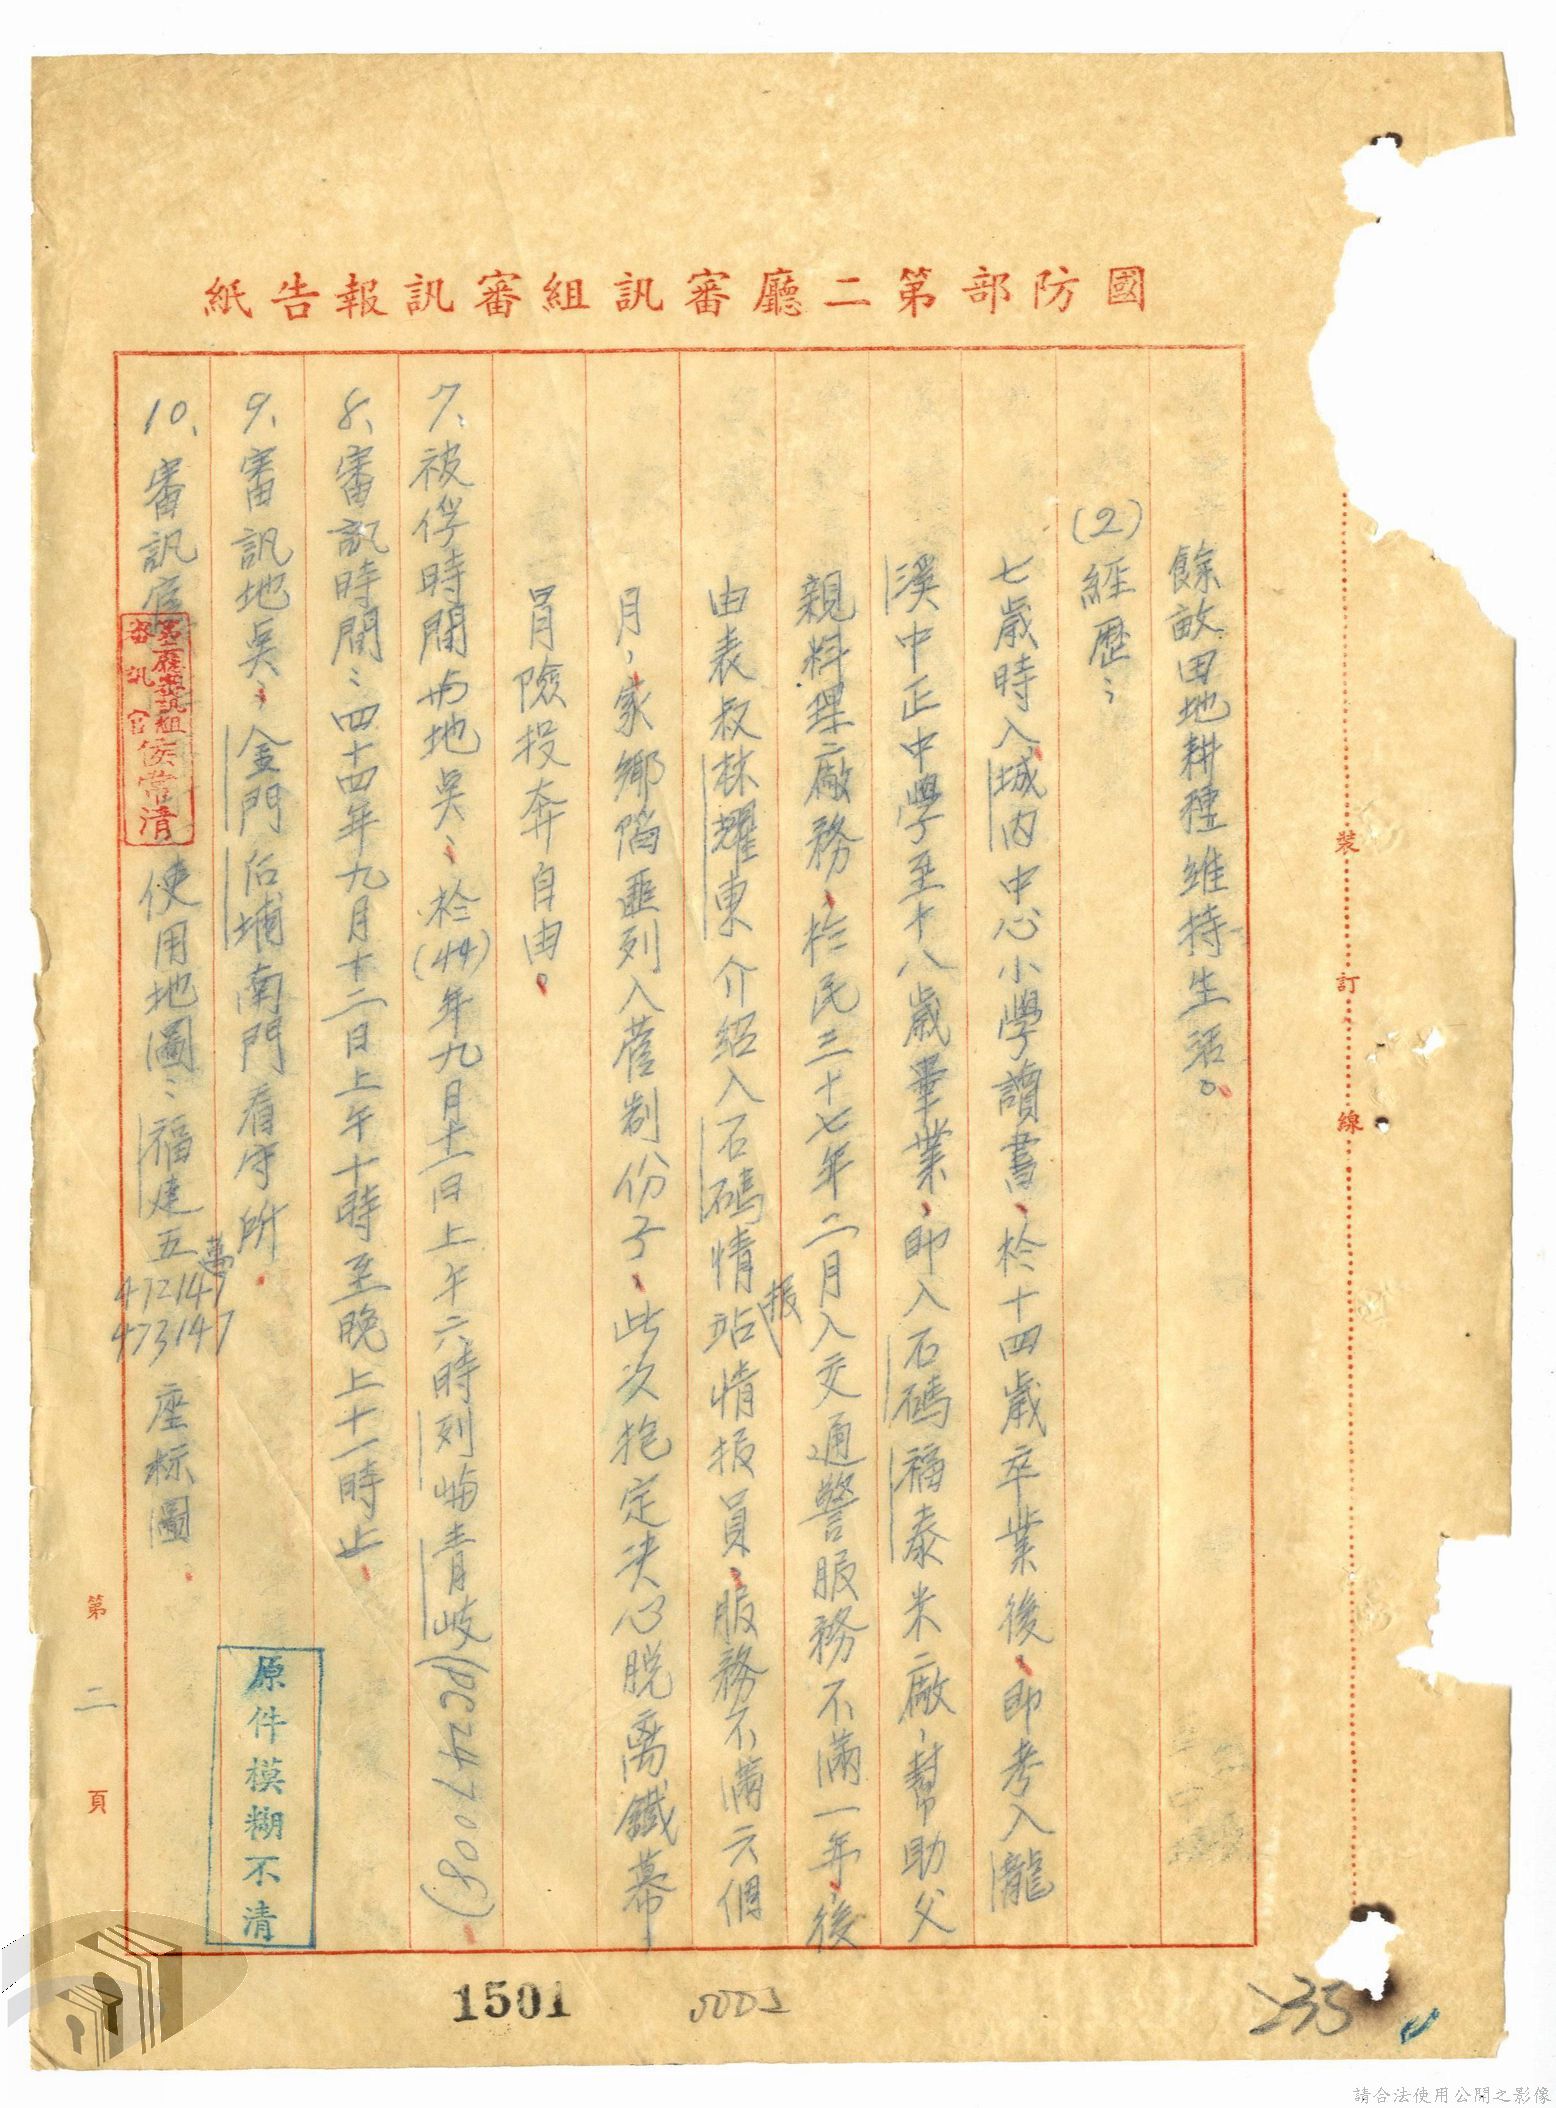 國防部第二廳審訊組審訊報告紙
餘畝田地耕種維持生活。
(2)經歷：
七歲時入城內中心小學讀書、於十四歲卒業後、即考入龍
溪中正中學至十八歲畢業、即入石碼福泰米廠、幫助父
親料理廠務、於民三十七年二月入交通警服務不滿一年、後
由表叔林耀東介紹入石碼情報站情报員、服務不滿六個
月，家鄉陷匪列入舊制份子、此次抱定决心脱离鐵幕
冒險投奔自由。
7、被俘時間与地吳：於(44)年九月十二日上午六時列嶼青岐(PC247008)
8、審訊時間：四十四年九月十二日上午十時至晚上十一時止。
9、審訊地吳：金門后埔南門看守所。
10、審訊官 使用地圖：福建五萬 472147 473147 座标圖。
第二廳審訊組
審訊官 侯常清
原件模糊不清
第二頁
裝訂線
1501
233
請合法使用公開之影像